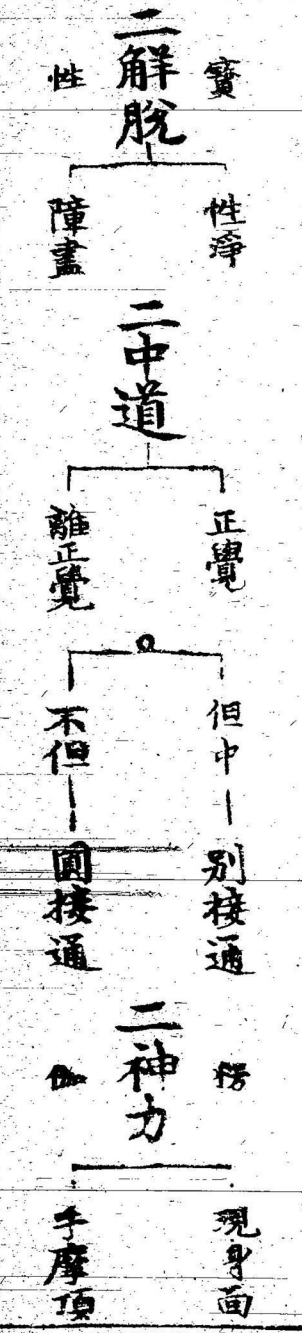 二解脫
寶性
性淨
障盡
二中道
正覺
離正覺
但中
不但
別接通
圓接通
二神力
楞伽
現身面
手摩頂